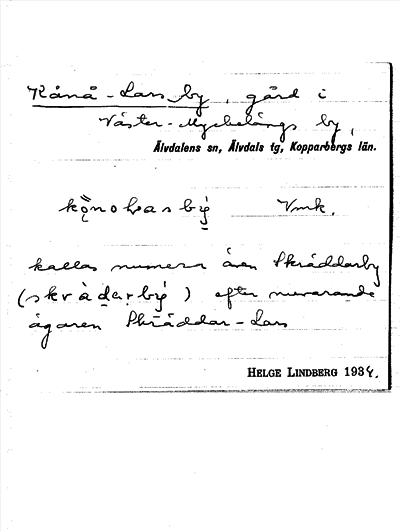 Kånå-Lars by, gård i
Väster-Myckelängs by,
Älvdalens sn, Älvdals tg, Kopparbergs län.
Vmk.
kallas numera även Skräddarby
(skràdarbý) efter nuvarande
ägaren Skräddar-Lars
HELGE LINDBERG 1934.